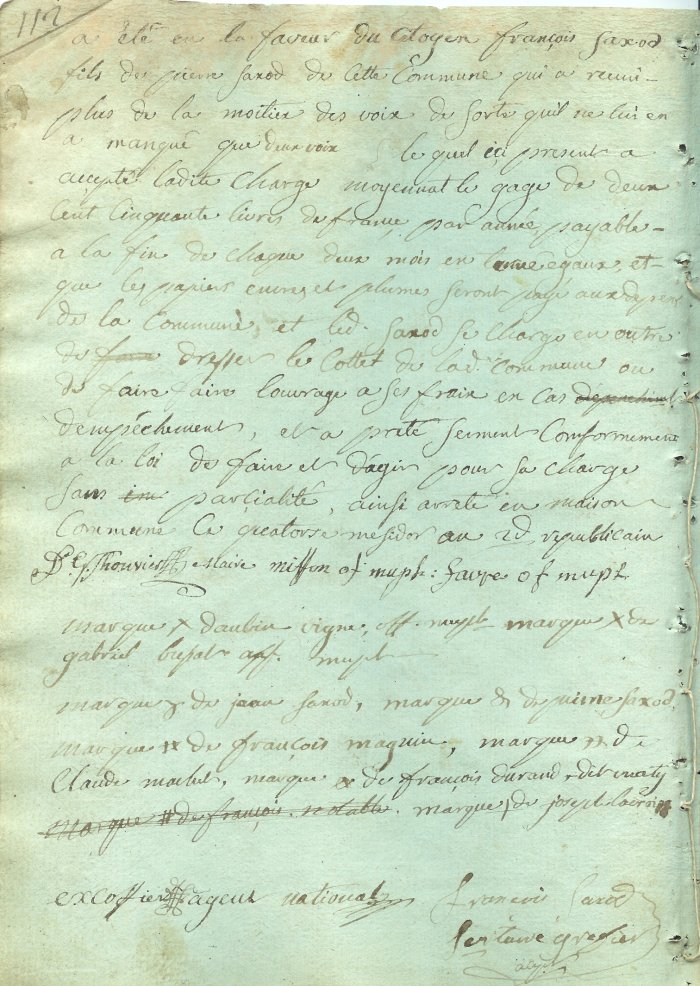 112
a été en la faveur du Citoyen françois Saxod
fils de pierre Saxod de Cette Commune qui a reuni
plus de la moitier des voix de sorte quil ne lui en
a manqué que deux voix le quel ici present a
accepté ladite Charge moyennat le gage de deux
Cent Cinquante livres de france par année, payable
a la fin de chaque deux mois en egaux, et
que les papiers encres et plume seront payé aux depens
de la Commune, et led. Saxod se charge en outre
de faire dresser le Cottet de lad. Commune ou
de faire faire louvrage a ses frais en Cas
dempéchement, et a prété serment Conformement
a la loi de faire et dagir pour sa charge
sans im parcialité, ainsi arreté en maison
Commune Ce quatorze messidor au 2d. republicain
Thouvier Maire misson of mupl: favre of mupl.
marque x daubin vigne, off. mupl marque x de
gabriel off. mupl
marque x de jean Saxod, marque de pierre Saxod,
marque de françois maguin, marque de
Claude machet, marque de françois durand dit
marque # de françois notable. marque de joseph
excoffier agent national françois Saxod
Secretaire grefier